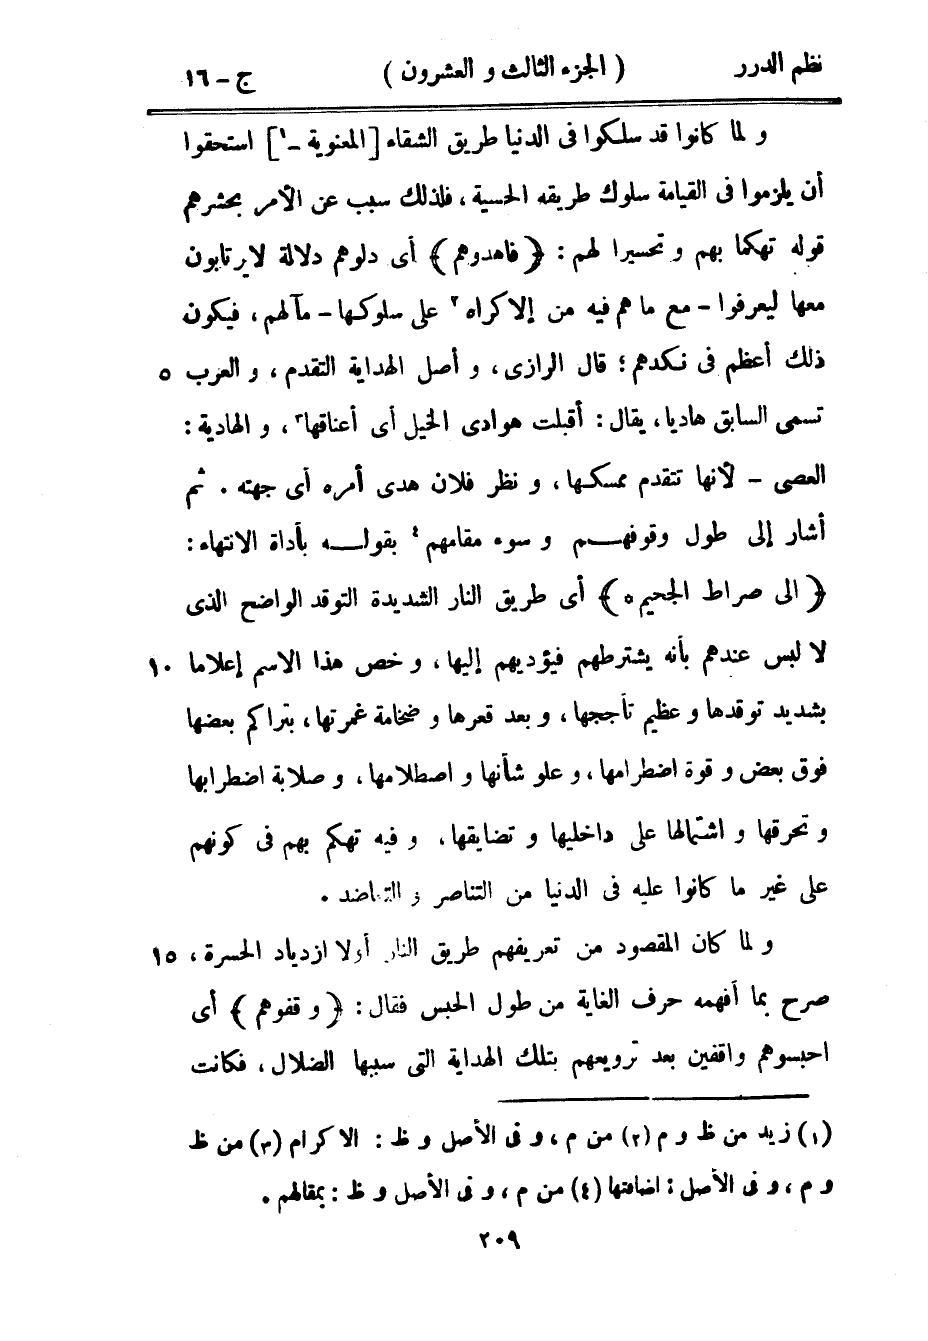 نظم الدرر ( الجزء الثالث و العشرون ) ج – ١٦
و لما كانوا قد سلكوا فى الدنيا طريق الشقاء [المعنوية –١] استحقوا
أن يلزموا فى القيامة سلوك طريقه الحسية ، فلذلك سبب عن الأمر بحشرهم
قوله تهكما بهم و تحسيرا لهم : ﴿ فاهدوهم ﴾ أى دلوهم دلالة لايرتابون
معها ليعرفوا – مع ما هم فيه من إلاكراه٢ على سلوكها – مآلهم ، فيكون
ذلك أعظم فى نكدهم ؛ قال الرازى ، و أصل الهداية التقدم ، و العرب ٥
تسمى السابق هاديا ، يقال : أقبلت هوادى الخيل أى أعناقها٣ ، و الهادية :
العصى – لأنها تتقدم ممسكها ، و نظر فلان هدى أمره أى جهته . ثم
أشار إلى طول وقوفهم و سوء مقامهم٤ بقوله بأداة الانتهاء :
﴿ الى صراط الجحيم ٥ ﴾ أى طريق النار الشديدة التوقد الواضح الذى
لا لبس عندهم بأنه يشترطهم فيؤديهم إليها ، و خص هذا الاسم إعلاما ١٠
بشديد توقدها و عظيم تأججها ، و بعد قعرها و ضخامة غمرتها ، بتراكم بعضها
فوق بعض و قوة اضطرامها ، و علو شأنها و اصطلامها ، و صلابة اضطرابها
و تحرقها و اشتمالها على داخليها و تضايقها ، و فيه تهكم بهم فى كونهم
على غير ما كانوا عليه فى الدنيا من التناصر و التعاضد .
و لما كان المقصود من تعريفهم طريق النار أولا ازدياد الحسرة ، ١٥
صرح بما أفهمه حرف الغاية من طول الحبس فقال : ﴿ و قفوهم ﴾ أى
احبسوهم واقفين بعد ترويعهم بتلك الهداية التى سببها الضلال ، فكانت
(١) زيد من ظ و م (٢) من م ، و فى الأصل و ظ : الاكرام (٣) من ظ
و م ، و فى الأصل : اضافتها (٤) من م ، و فى الأصل و ظ : بمقالهم .
٢٠٩